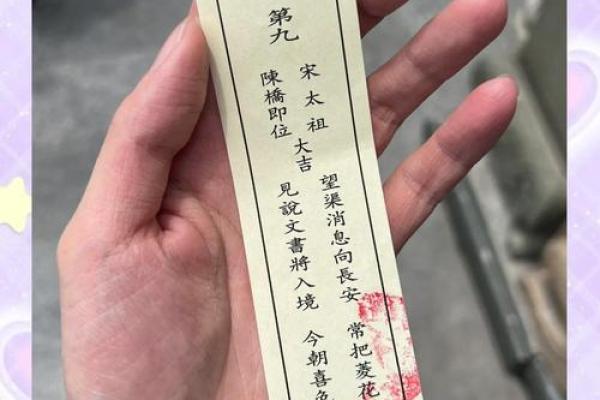 第九
宋太祖
陳橋即位
大吉
望渠消息向長安 常把菱花
見說文書將入境 今朝喜